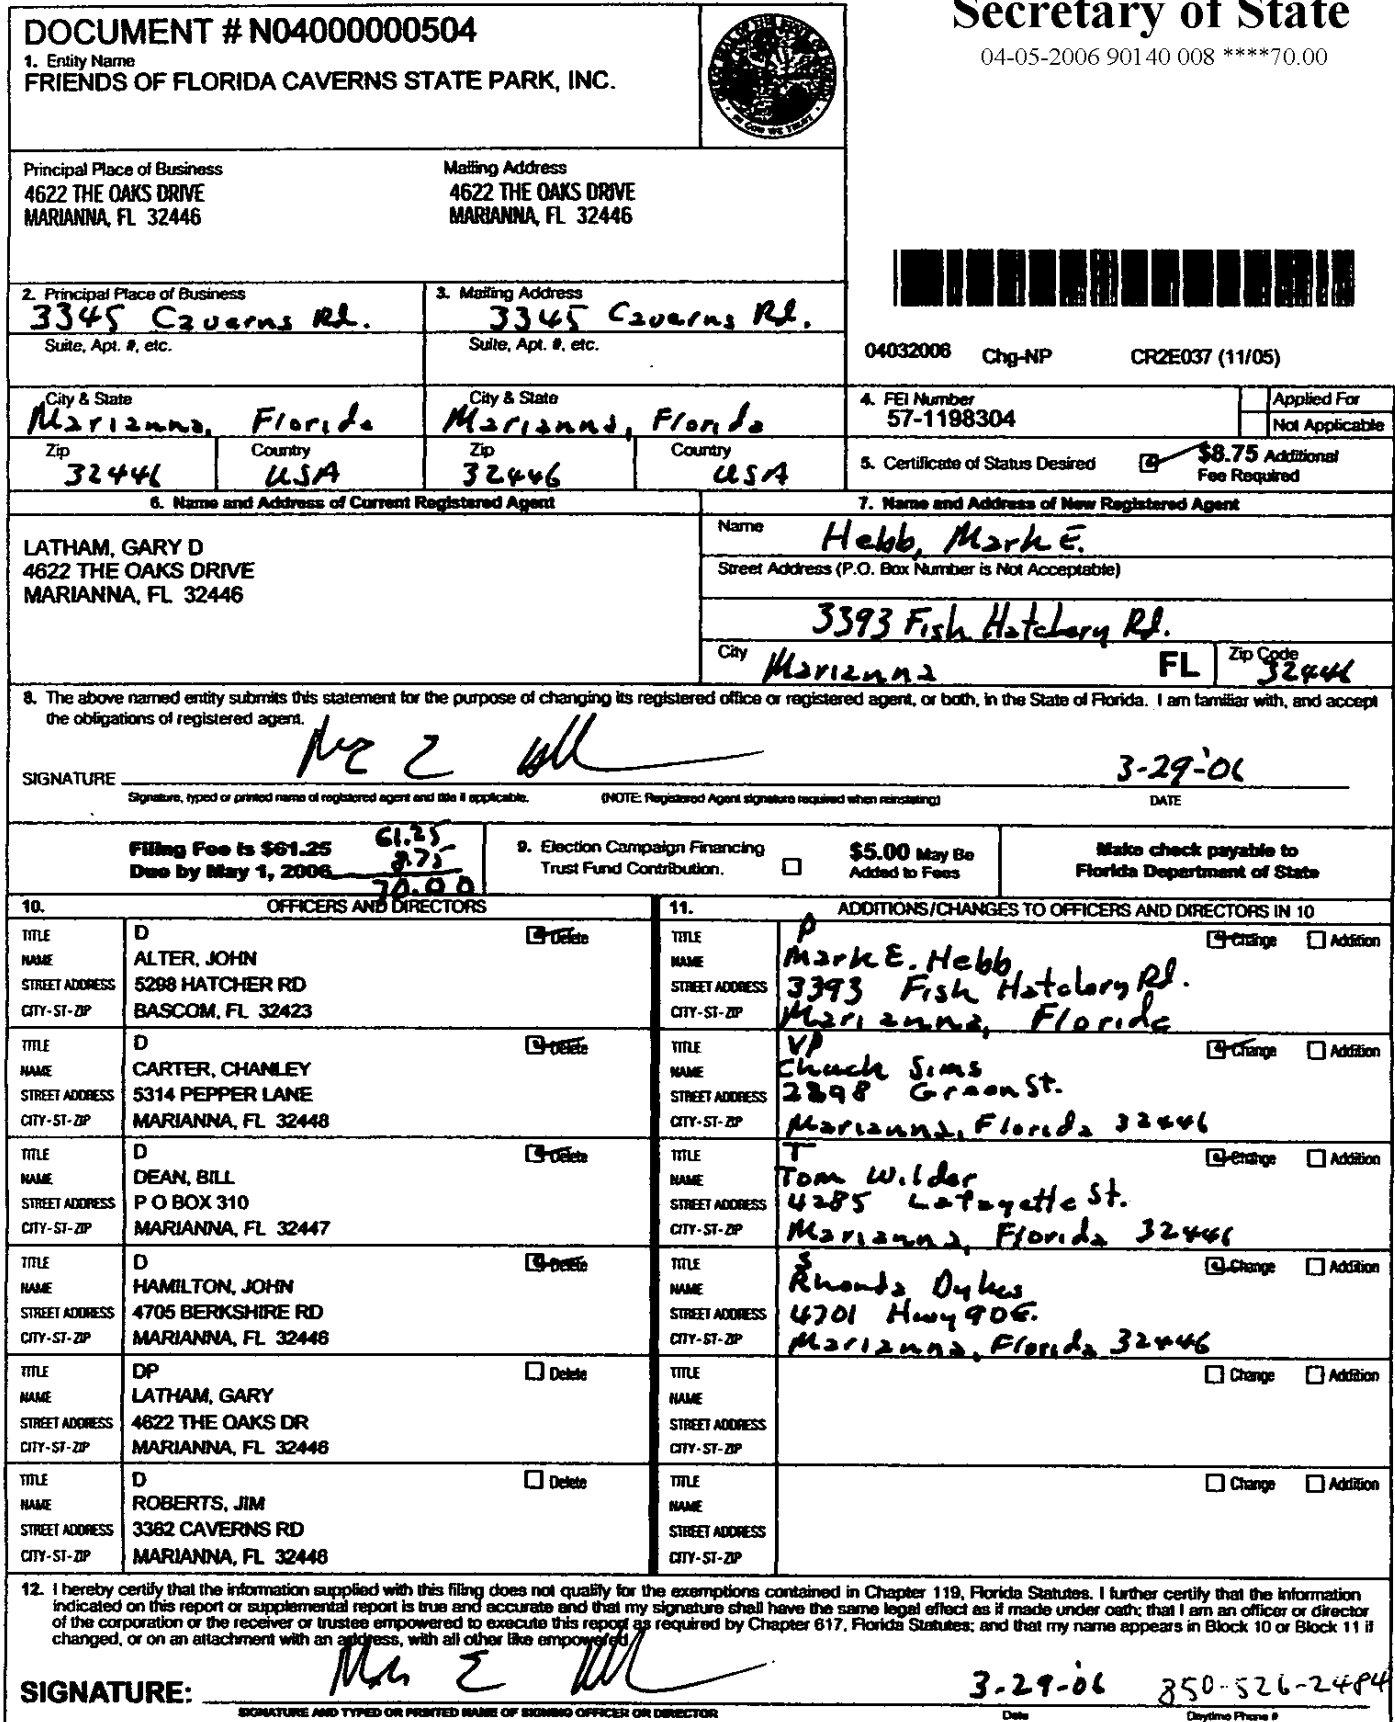 Secretary of State
04-05-2006 90140 008 ****70.00
DOCUMENT # N04000000504
1. Entity Name
FRIENDS OF FLORIDA CAVERNS STATE PARK, INC.
IN GOD WE TRUST
Principal Place of Business
4622 THE OAKS DRIVE
MARIANNA, FL 32446
Mailing Address
4622 THE OAKS DRIVE
MARIANNA, FL 32446
2. Principal Place of Business
3345 Caverns Rd.
3. Mailing Address
3345 Caverns Rd.
Suite, Apt. #, etc.
Suite, Apt. #, etc.
04032006 Chg-NP CR2E037 (11/05)
City & State
Marianna, Florida
City & State
Marianna, Florida
Zip
32446
Country
USA
Zip
32446
Country
USA
4. FEI Number
57-1198304
Applied For
Not Applicable
5. Certificate of Status Desired
$8.75 Additional
Fee Required
6. Name and Address of Current Registered Agent
LATHAM, GARY D
4622 THE OAKS DRIVE
MARIANNA, FL 32446
7. Name and Address of New Registered Agent
Name
Hebb, Mark E.
Street Address (P.O. Box Number is Not Acceptable)
3393 Fish Hatchery Rd.
City Marianna FL Zip Code 32446
8. The above named entity submits this statement for the purpose of changing its registered office or registered agent, or both, in the State of Florida. I am familiar with, and accept
the obligations of registered agent.
SIGNATURE 3-29-06
Signature, typed or printed name of registered agent and title if applicable. (NOTE: Registered Agent signature required when reinstating) DATE
Filing Fee is $61.25
Due by May 1, 2006
61.25
8.75
70.00
9. Election Campaign Financing
Trust Fund Contribution.
$5.00 May Be
Added to Fees
Make check payable to
Florida Department of State
10. OFFICERS AND DIRECTORS
TITLE D Delete
NAME ALTER, JOHN
STREET ADDRESS 5298 HATCHER RD
CITY-ST-ZIP BASCOM, FL 32423
TITLE D Delete
NAME CARTER, CHANLEY
STREET ADDRESS 5314 PEPPER LANE
CITY-ST-ZIP MARIANNA, FL 32448
TITLE D Delete
NAME DEAN, BILL
STREET ADDRESS P O BOX 310
CITY-ST-ZIP MARIANNA, FL 32447
TITLE D Delete
NAME HAMILTON, JOHN
STREET ADDRESS 4705 BERKSHIRE RD
CITY-ST-ZIP MARIANNA, FL 32446
TITLE DP Delete
NAME LATHAM, GARY
STREET ADDRESS 4622 THE OAKS DR
CITY-ST-ZIP MARIANNA, FL 32446
TITLE D Delete
NAME ROBERTS, JIM
STREET ADDRESS 3362 CAVERNS RD
CITY-ST-ZIP MARIANNA, FL 32446
11. ADDITIONS/CHANGES TO OFFICERS AND DIRECTORS IN 10
TITLE P Change Addition
NAME Mark E. Hebb
STREET ADDRESS 3393 Fish Hatchery Rd.
CITY-ST-ZIP Marianna, Florida
TITLE VP Change Addition
NAME Chuck Sims
STREET ADDRESS 2898 Green St.
CITY-ST-ZIP Marianna, Florida 32446
TITLE T Change Addition
NAME Tom Wilder
STREET ADDRESS 4285 Lafayette St.
CITY-ST-ZIP Marianna, Florida 32446
TITLE S Change Addition
NAME Rhonda Dykes
STREET ADDRESS 4701 Hwy 90 E.
CITY-ST-ZIP Marianna, Florida 32446
TITLE Change Addition
NAME
STREET ADDRESS
CITY-ST-ZIP
TITLE Change Addition
NAME
STREET ADDRESS
CITY-ST-ZIP
12. I hereby certify that the information supplied with this filing does not qualify for the exemptions contained in Chapter 119, Florida Statutes. I further certify that the information
indicated on this report or supplemental report is true and accurate and that my signature shall have the same legal effect as if made under oath; that I am an officer or director
of the corporation or the receiver or trustee empowered to execute this report as required by Chapter 617, Florida Statutes; and that my name appears in Block 10 or Block 11 if
changed, or on an attachment with an address, with all other like empowered.
SIGNATURE: 3-29-06 850-526-2484
SIGNATURE AND TYPED OR PRINTED NAME OF SIGNING OFFICER OR DIRECTOR Date Daytime Phone #